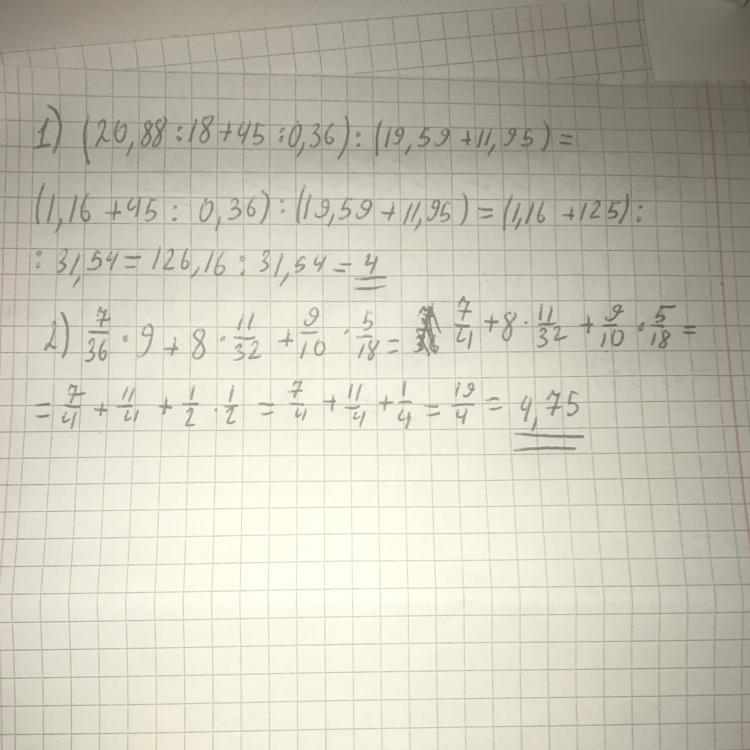 1) (20,88 : 18 + 45 : 0,36) : (19,59 + 11,95) =
(1,16 + 45 : 0,36) : (19,59 + 11,95) = (1,16 + 125) :
: 31,54 = 126,16 : 31,54 = 4
2) 7/36 · 9 + 8 · 11/32 + 9/10 · 5/18 = 7/4 + 8 · 11/32 + 9/10 · 5/18 =
= 7/4 + 11/4 + 1/2 · 1/2 = 7/4 + 11/4 + 1/4 = 19/4 = 4,75